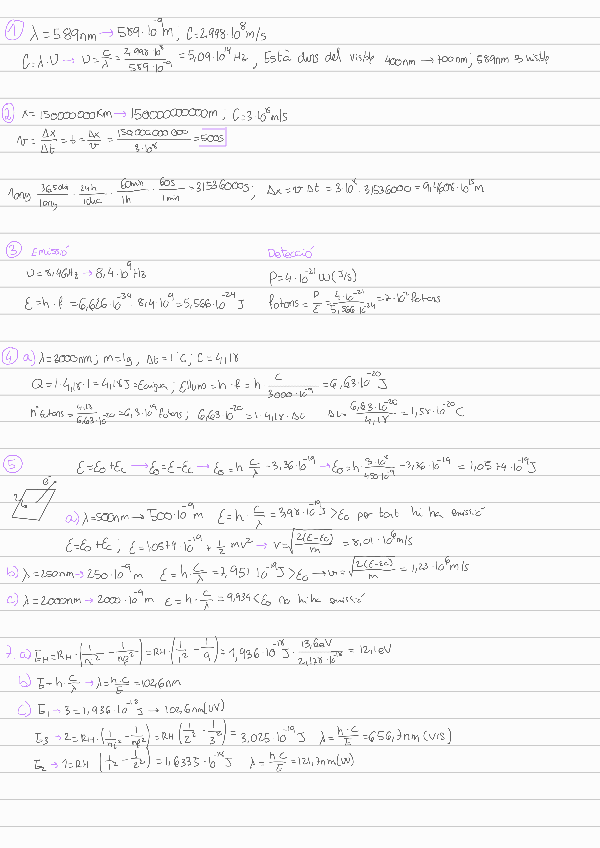 1 λ = 589nm → 589·10⁻⁹m, C = 2.998·10⁸m/s
C = λ·υ → υ = C/λ = 2,998·10⁸/589·10⁻⁹ = 5,09·10¹⁴Hz, Està dins del visible 400nm → 700nm; 589nm és visible
2 x = 150000000Km → 150000000000m, C = 3·10⁸m/s
v = Δx/Δt = t = Δx/v = 150.000.000.000/3·10⁸ = 500s
1any 365dia/1any · 24h/1dia · 60min/1h · 60s/1min = 31536000s; Δx = v·Δt = 3·10⁸·31536000 = 9,4608·10¹⁵m
3 Emissió Detecció
υ = 8,4GHz → 8,4·10⁹Hz P = 4·10⁻²¹ W (J/s)
E = h·f = 6,626·10⁻³⁴ 8,4·10⁹ = 5,566·10⁻²⁴ J fotons = P/E = 4·10⁻²¹/5,566·10⁻²⁴
4 a) λ = 3000nm; m = 1g, Δt = 1°C; C = 4,18
Q = 1·4,18·1 = 4,18J = Eaigua; Ellum = h·f = h C/3000·10⁻⁹ = 6,63·10⁻²⁰J
nºfotons = 4,18/6,63·10⁻²⁰ = 6,3·10¹⁹ fotons; 6,63·10⁻²⁰ = 1·4,18·Δt Δt = 6,63·10⁻²⁰/4,18 = 1,58·10⁻²⁰C
5 E = E₀+Ec → E₀ = E-Ec → E₀ = h C/λ - 3,36·10⁻¹⁹ → E₀ = h 3·10⁸/450·10⁻⁹ - 3,36·10⁻¹⁹ = 1,0574·10⁻¹⁹J
a) λ = 500nm → 500·10⁻⁹m E = h·C/λ = 3,98·10⁻¹⁹J > E₀ per tant hi ha emissió
E = E₀+Ec; E = 1,0574·10⁻¹⁹ + 1/2 mv² → v = √2(E-E₀)/m = 8,01·10⁵m/s
b) λ = 250nm → 250·10⁻⁹m E = h·C/λ = 7,951·10⁻¹⁹J > E₀ → v = √2(E-E₀)/m = 1,23·10⁶m/s
c) λ = 2000nm → 2000·10⁻⁹m E = h·C/λ = 9,934 < E₀ no hi ha emissió
7. a) E_H = R_H·(1/n² - 1/n₂²) = RH·(1/1² - 1/9) = 1,936·10⁻¹⁸J · 13,6eV/2,178·10⁻¹⁸ = 12,1eV
b) E = h·C/λ → λ = h·C/E = 102,6nm
c) E₁ → 3 = 1,936·10⁻¹⁸J → 102,6nm(UV)
E₃ → 2 = RH·(1/n₁² - 1/n₂²) = RH(1/2² - 1/3²) = 3,025·10⁻¹⁹J λ = h·C/E = 656,7nm(VIS)
E₂ → 1 = RH (1/1² - 1/2²) = 1,6335·10⁻¹⁸J λ = h·C/E = 121,7nm(UV)